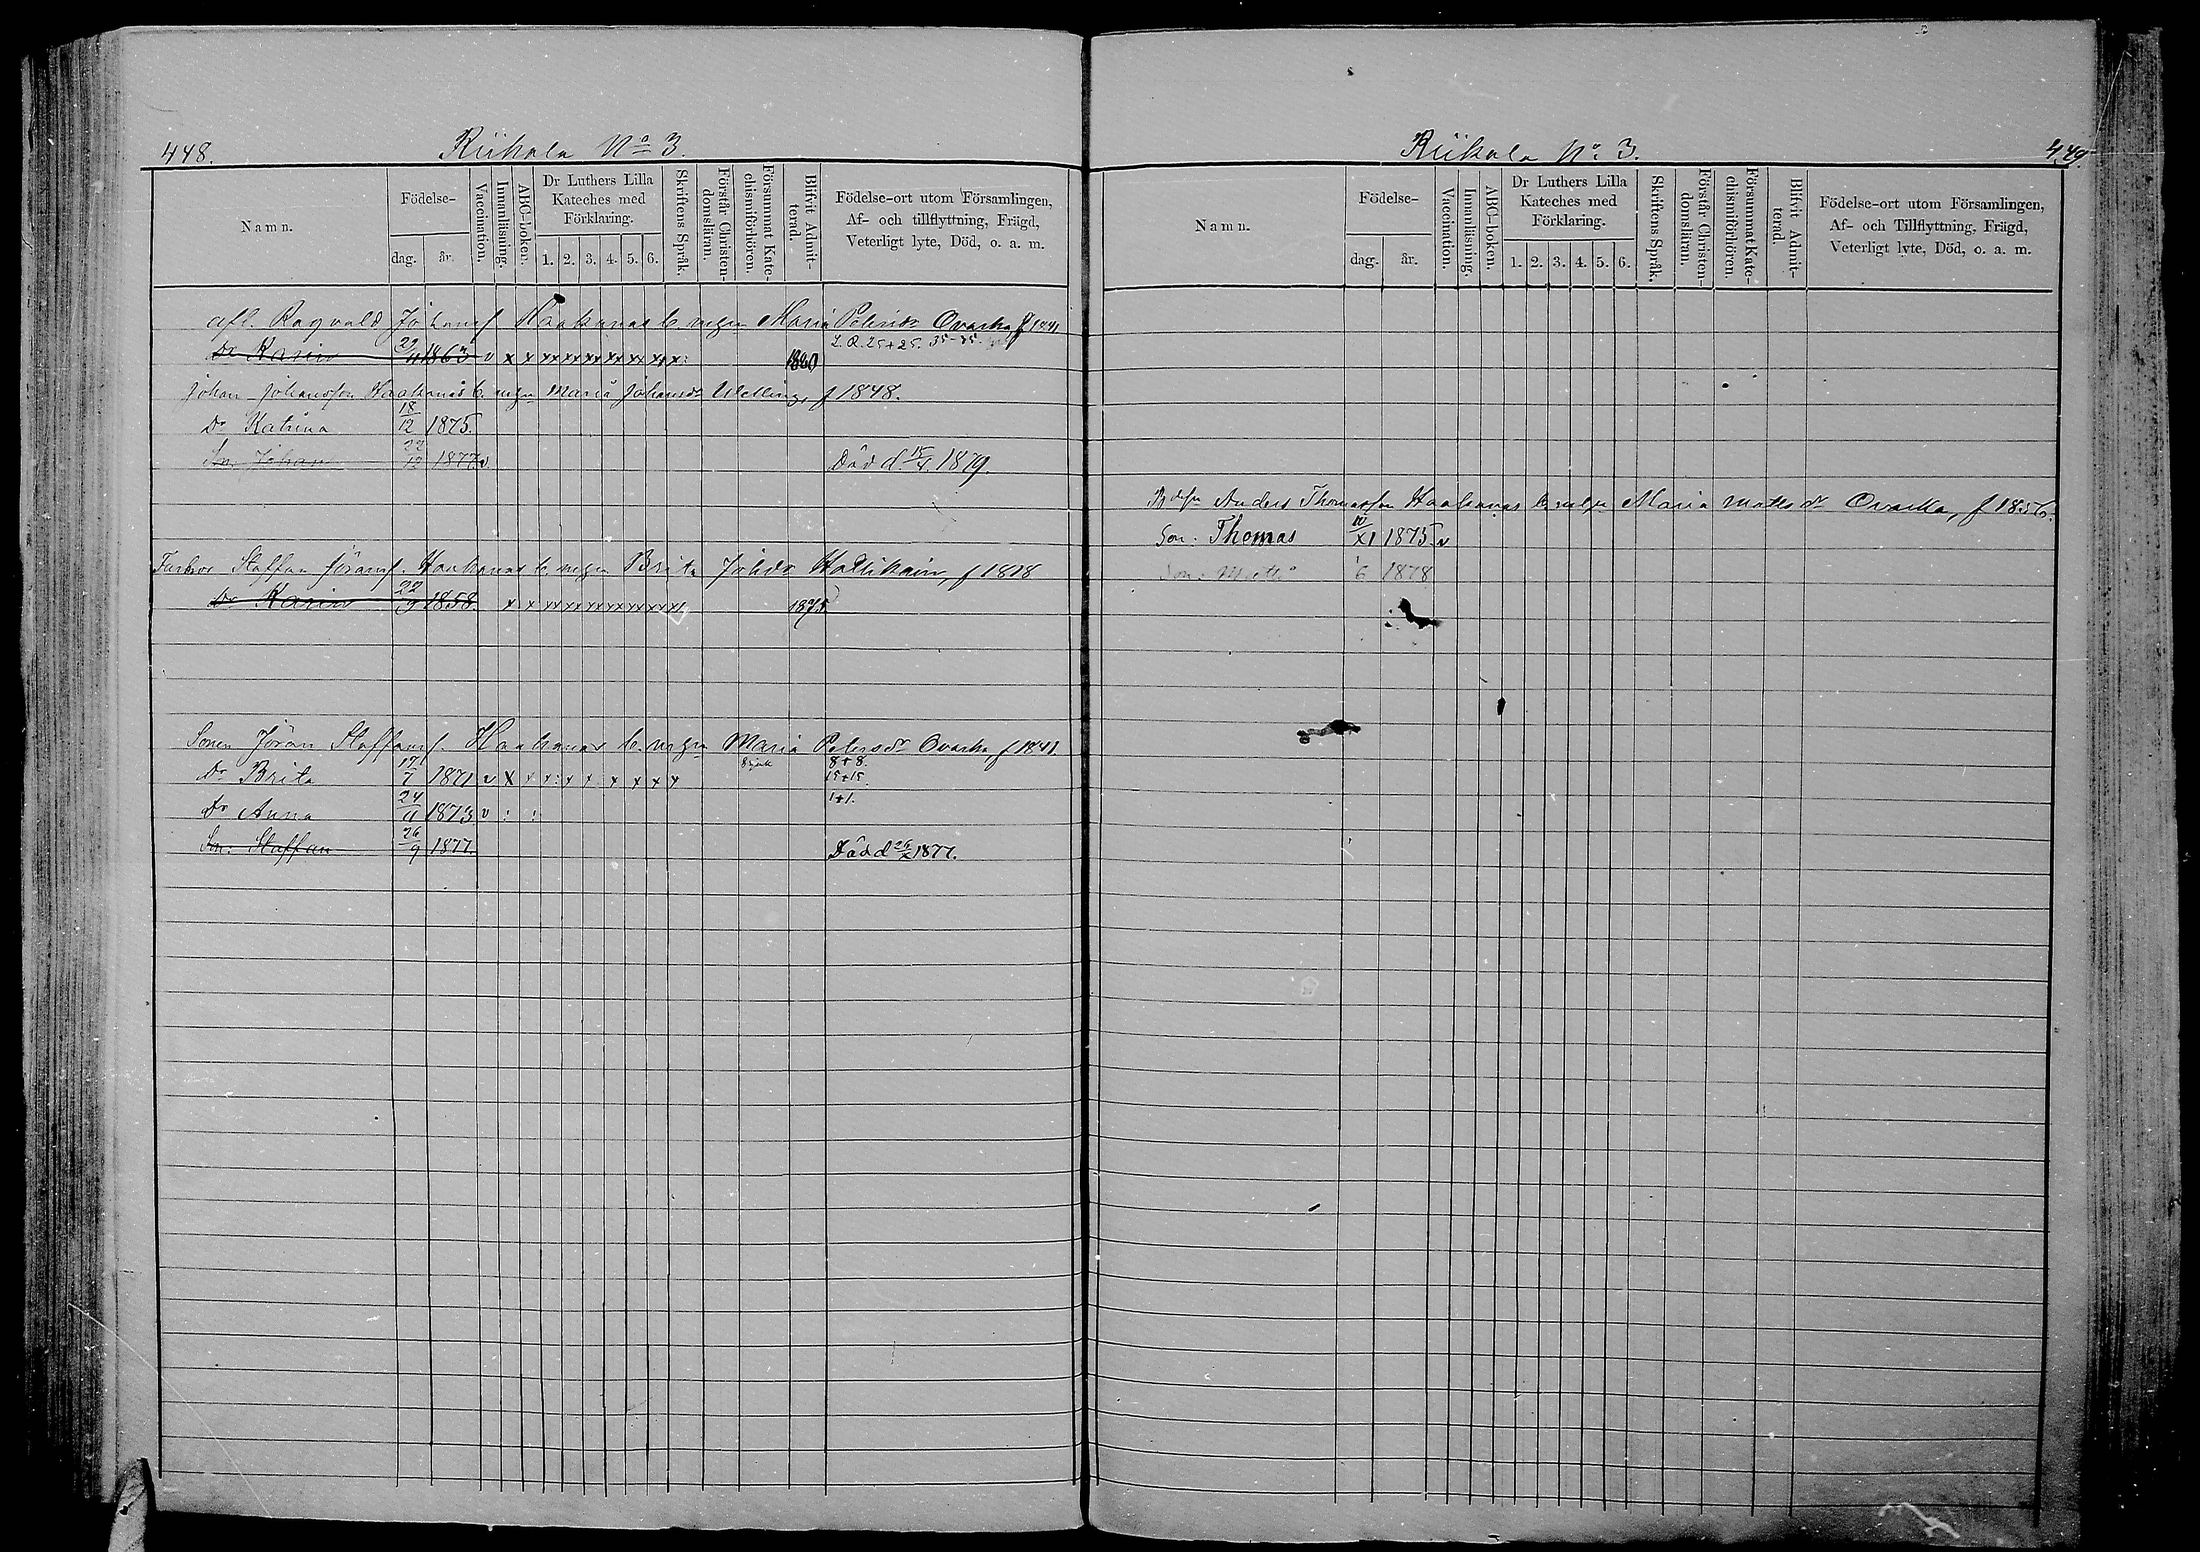 448.
Riikala No 3.
Namn.
Födelse-
dag.
år.
Vaccination.
Innanläsning.
ABC-boken.
Dr Luthers Lilla
Kateches med
Förklaring.
1. 2. 3. 4. 5. 6.
Skriftens Språk.
Förstår Christen-
domsläran.
Försummat Kate-
chismiförhören.
Blifvit Admit-
terad.
Födelse-ort utom Församlingen,
Af- och tillflyttning, Frägd,
Veterligt lyte, Död, o. a. m.
afl. Ragvald Johansf. Haakanas b. Maria Petersdr Ovaska, f 1821
Dr Karin 22/11 1863 v x x xx xx xx xx xx xx x: 1880
25+25. 35-35.
Johan Johansson Haakanas b. Maria Johansdr f 1848.
Dr Katrina 18/12 1875.
Son Johan 22/12 1877 v Död d 15/4 1879.
Staffan Jöransf. Haakanas b. Brita Johdr Hallikain, f 1818
Dr Karin 22/9 1858 x x xx xx xx xx xx xx x 1875
Sonen Jöran Staffansf. Haakanas b. Maria Petersdr Ovaska, f 1841.
8+8.
Dr Brita 17/7 1871 v x x x: x x x x x x 15+15.
1+1.
Dr Anna 24/11 1873 v : :
Son: Staffan 26/9 1877. Död d 26/X 1877.
Riikala No 3.
449
Namn.
Födelse-
dag.
år.
Vaccination.
Innanläsning.
ABC-boken.
Dr Luthers Lilla
Kateches med
Förklaring.
1. 2. 3. 4. 5. 6.
Skriftens Språk.
Förstår Christen-
domsläran.
Försummat Kate-
chismiförhören.
Blifvit Admit-
terad.
Födelse-ort utom Församlingen,
Af- och Tillflyttning, Frägd,
Veterligt lyte, Död, o. a. m.
Anders Thomasson Haakanas b. Maria Matts dr Ovaska, f 1856.
Son. Thomas 10/XI 1875 v
Son. 6 1878